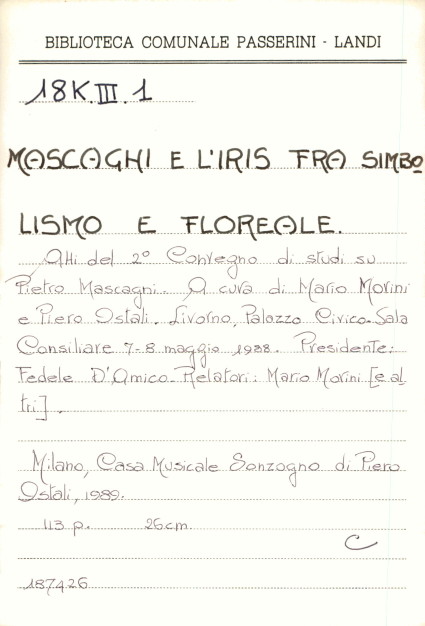 BIBLIOTECA COMUNALE PASSERINI - LANDI
18K.III.1
MASCAGHI E L'IRIS FRA SIMBO
LISMO E FLOREALE.
Atti del 2° Convegno di studi su
Pietro Mascagni. A cura di Mario Morini
e Piero Ostali. Livorno, Palazzo Civico-Sala
Consiliare 7-8 maggio 1988. Presidente:
Fedele D'Amico. Relatori: Mario Morini [e al
tri].
Milano, Casa Musicale Sonzogno di Piero
Ostali, 1989.
113 p. 26cm.
C
187426